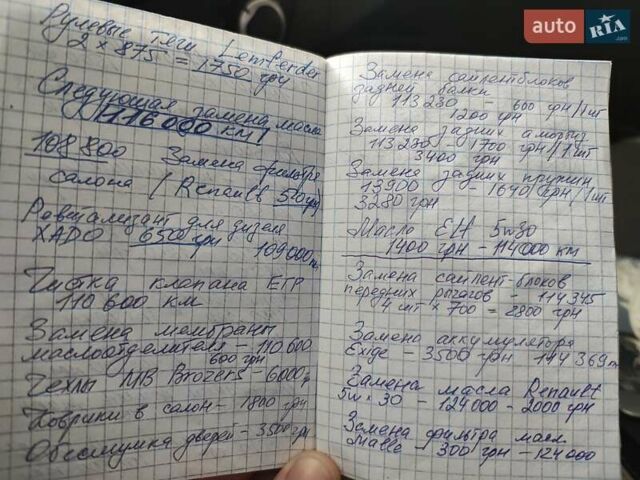 Рулевые тяги Lemferder
2 x 875 = 1750 грн
Следующая замена масла
116000 км!
108 800 Замена фильтра
салона (Renault 520грн)
Ревитализант для дизеля
XADO 650 грн 109000
Чистка клапана ЕГР
110 600 км
Замена мембраны
маслоотделителя - 110600
600 грн
Чехлы MB Brozers - 6000
Коврики в салон - 1800 грн
Обесшумка дверей - 3500 грн
Замена саилентблоков
задней балки
113230 - 600 грн/1шт
1200 грн
Замена задних аморыз
113230 - 1700 грн/1шт
3400 грн
Замена задних пружин
13900 - 1640 грн/1шт
3280 грн
Масло ЕН 5w30
1400 грн - 114000 км
Замена саилент-блоков
передних рычагов - 114345
4 шт x 700 = 2800 грн
Замена аккумулятора
Exige - 3500 грн 114369
Замена масла Renault
5w x 30 - 124000 - 2000 грн
Замена фильтра масл
Malle - 300 грн - 124000
auto RIA
.com